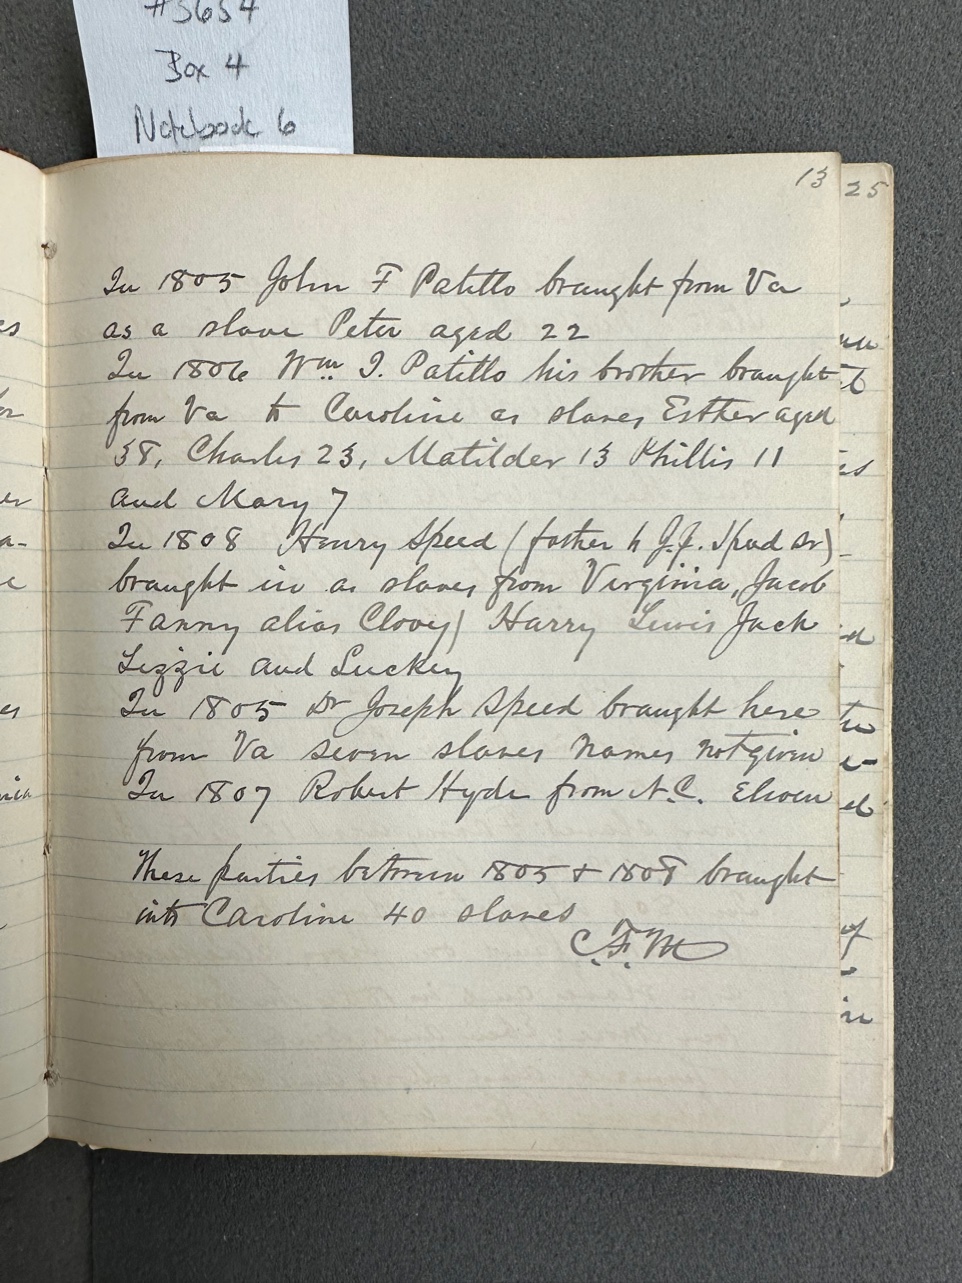 #5654
Box 4
Notebook 6
13
25
In 1805 John F Patillo braught from Va
as a slave Peter aged 22
In 1806 Wm I. Patillo his brother braught
from Va to Caroline as slaves Esther aged
38, Charles 23, Matilder 13 Phillis 11
and Mary 7
In 1808 Henry Speed (father to J.J. Speed Sr)
braught in as slaves from Virginia, Jacob
Fanny alias Clovey) Harry Lewis Jack
Lizzie and Luckey
In 1805 Dr Joseph Speed braught here
from Va seven slaves names not given
In 1807 Robert Hyde from N.C. Eleven
These parties between 1805 & 1808 braught
into Caroline 40 slaves
C.F.M